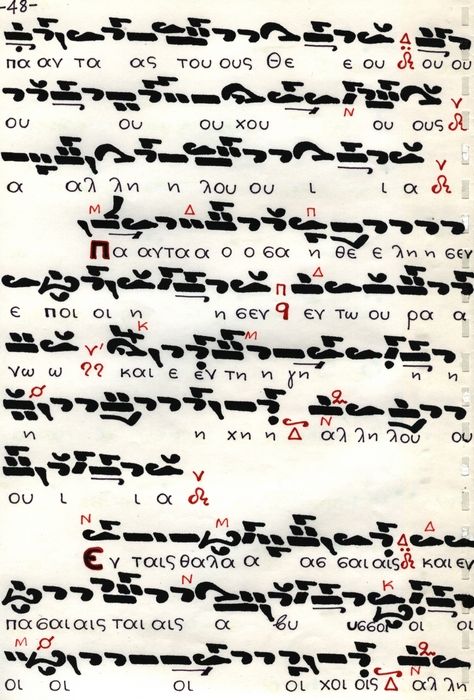 -48-
πα αν τα ας του ους Θε ε ου Δ ου ου
ου ου ου χου Ν ου ους ν
α αλ λη η λου ου ι ι α ν
Μ Δ Π
Πα αντα α ο ο σα η θε ε λη η σεν
Δ
ε ποι οι η η σεν Π q εν τω ου ρα α
Κ Μ
νω ω ν' και ε εν τη η γη η η
η η χη η Δ Ν αλ λη λου ου
ου ι ι α ν
Ν Μ Δ Δ
Εν ταις θαλα α ασ σαι αις και εν
Ν Κ
πα σαι αις ται αις α βυ υσσοι οι οι
Μ
οι οι οι οι χοι οις Δ Ν αλ λη